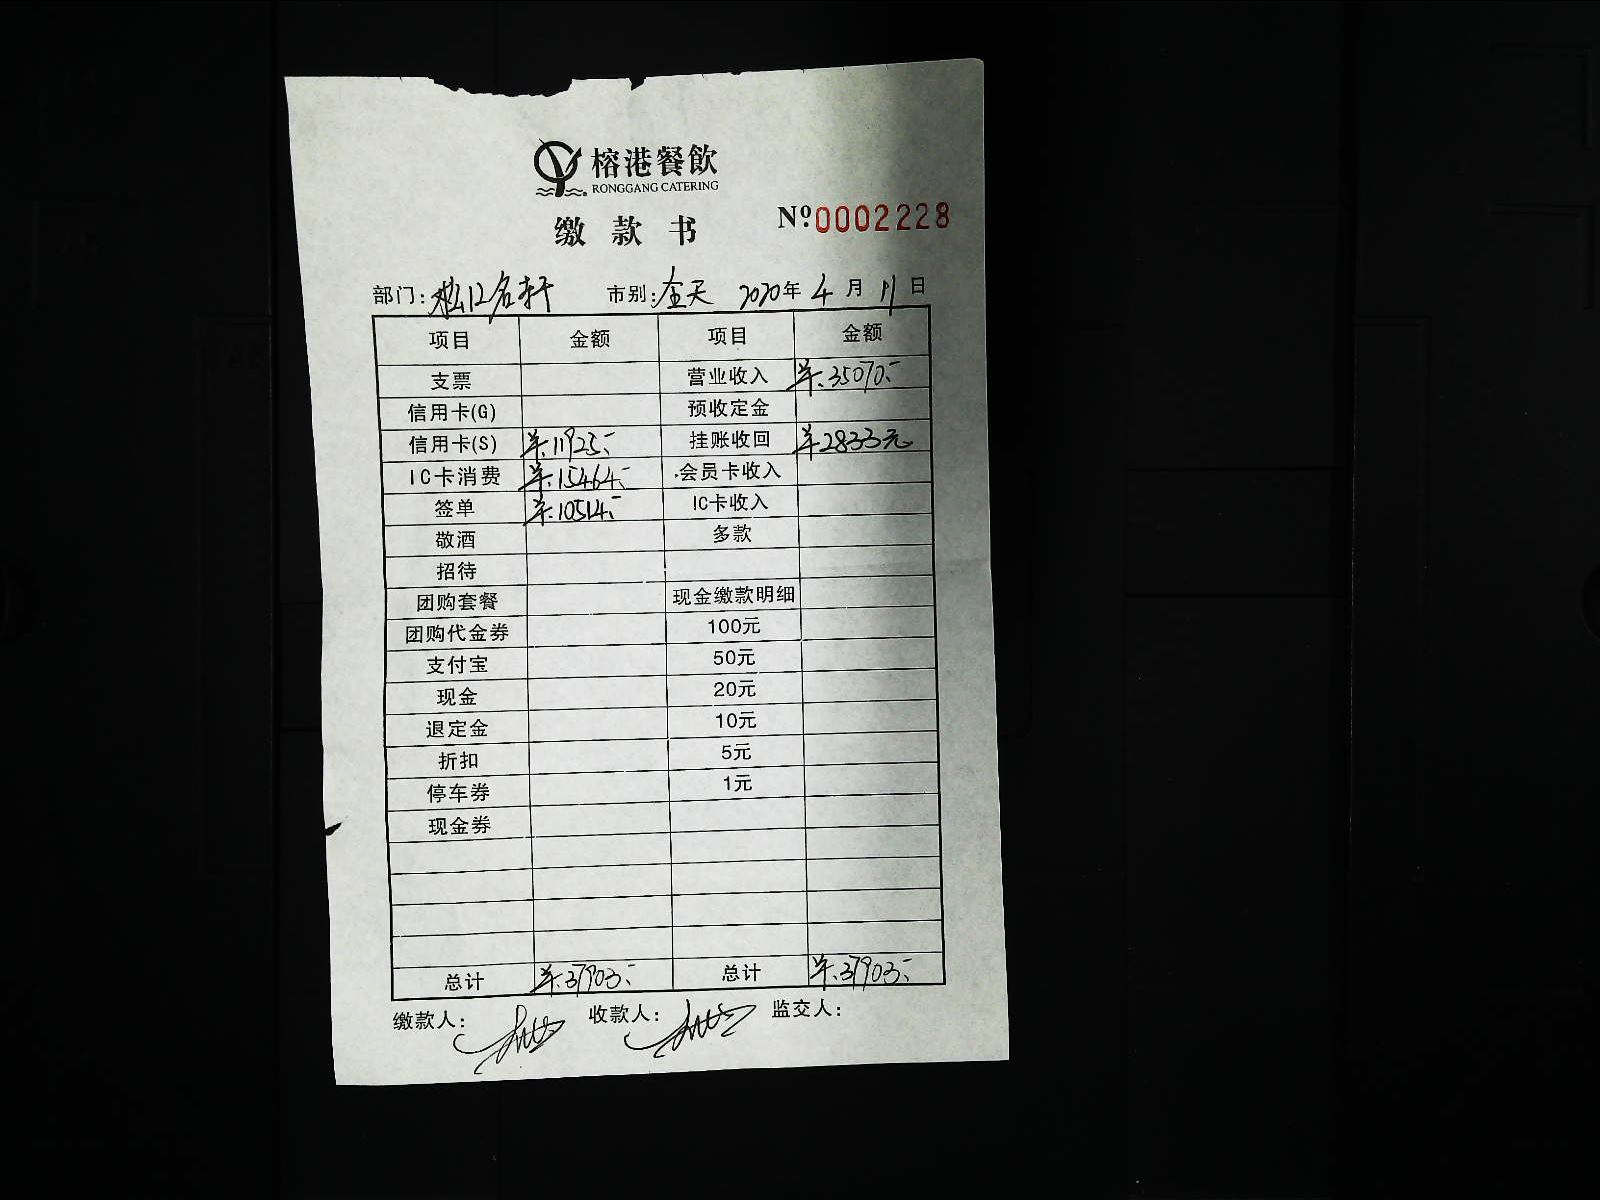 榕港餐飲
RONGGANG CATERING
缴款书 Nº:0002228
部门:松江名轩 市别:全天 2020年4月11日
项目 金额 项目 金额
支票 营业收入 ¥.35070.-
信用卡(G) 预收定金
信用卡(S) ¥.11925.- 挂账收回 ¥2833元
IC卡消费 ¥.15464.- 会员卡收入
签单 ¥.10514.- IC卡收入
敬酒 多款
招待
团购套餐 现金缴款明细
团购代金券 100元
支付宝 50元
现金 20元
退定金 10元
折扣 5元
停车券 1元
现金券
总计 ¥.37903.- 总计 ¥.37903.-
缴款人: 收款人: 监交人: